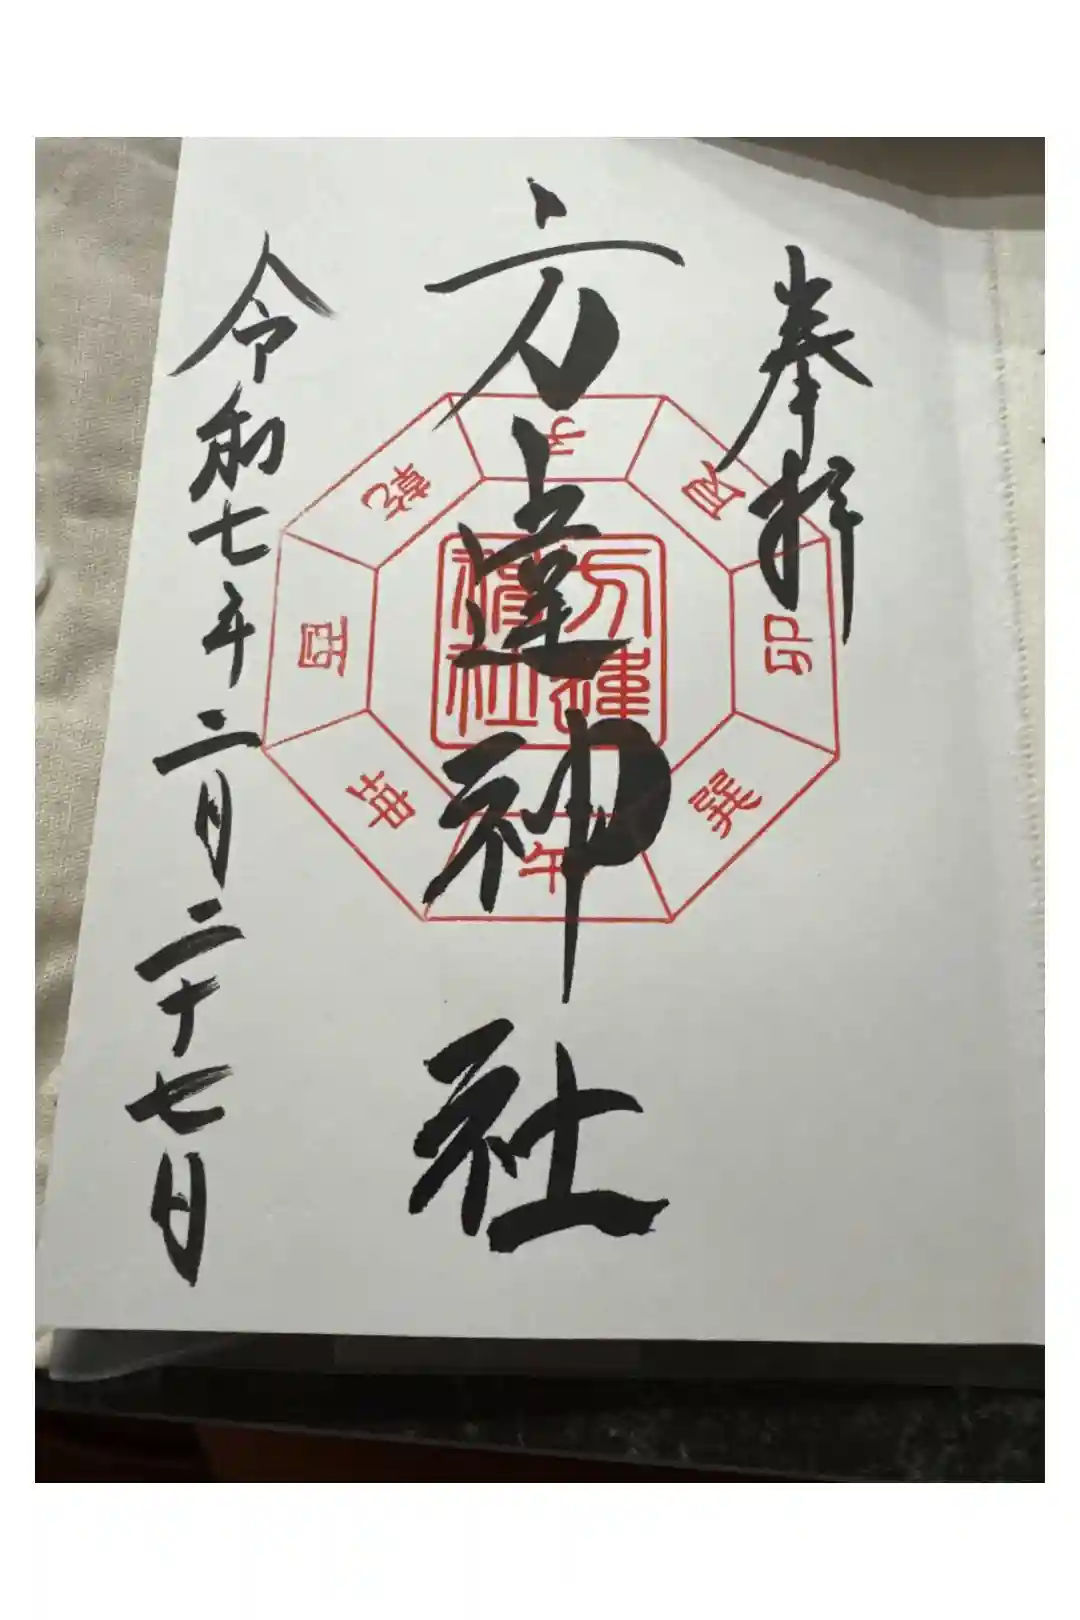 奉拝
方違神社
令和七年二月二十七日
方違神社
子
艮
卯
巽
午
坤
酉
乾